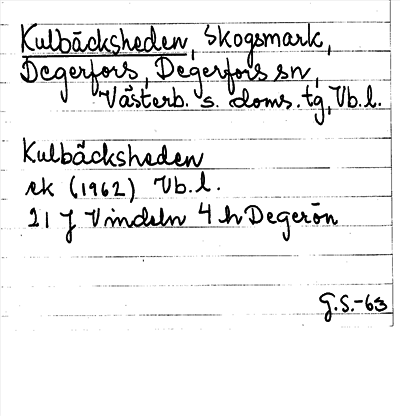 Kulbäcksheden, Skogsmark,
Degerfors, Degerfors sn,
Västerb. s. doms. tg, Vb. l.
Kulbäcksheden
ek (1962) Vb. l.
21 J Vindeln 4 h Degerön
G.S.-63